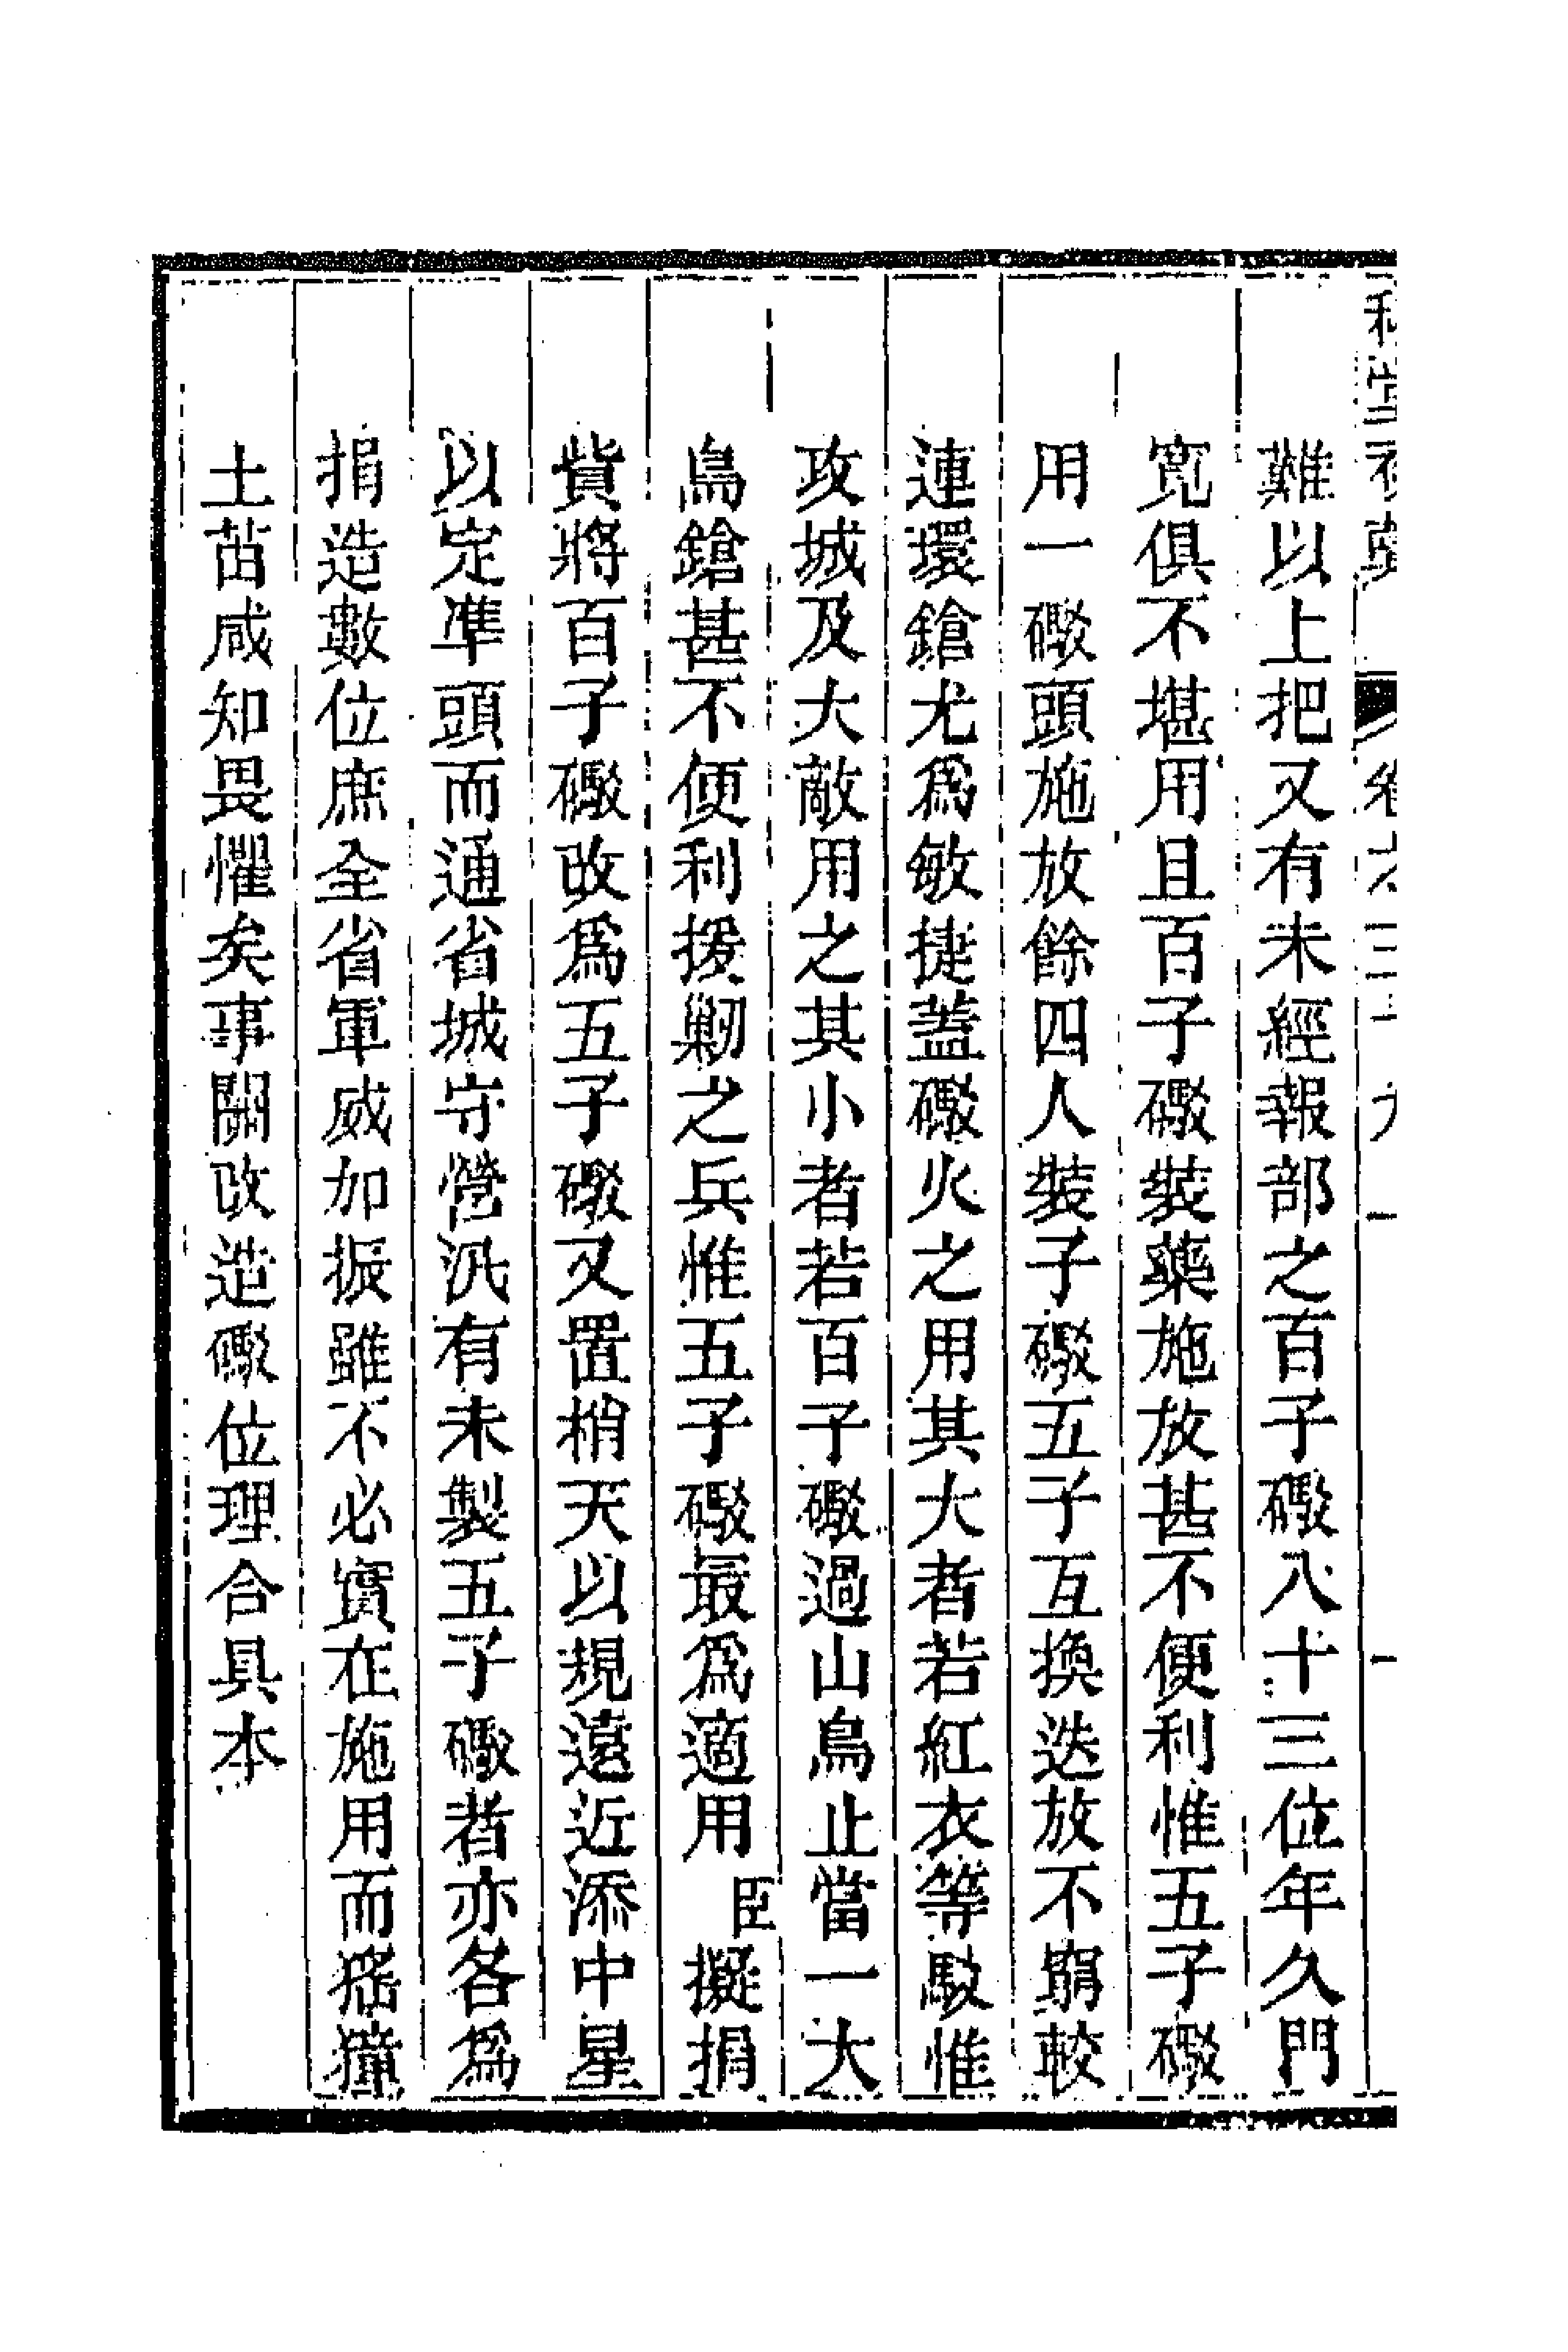 難以上把又有未經報部之百子礮八十三位年久門
寛俱不堪用且百子礮裝藥施放甚不便利惟五子礮
用一礮頭施放餘四人裝子礮五子互換迭放不窮較
連環鎗尤爲敏捷蓋礮火之用其大者若紅衣等駁惟
攻城及大敵用之其小者若百子礮過山鳥止當一大
鳥鎗甚不便利援勦之兵惟五子礮最爲適用臣擬捐
貲將百子礮改爲五子礮又置梢天以規遠近添中星
以定準頭而通省城守營汛有未製五子礮者亦各爲
捐造數位庶全省軍威加振雖不必實在施用而猺獞
土苗咸知畏懼矣事關改造礮位理合具本